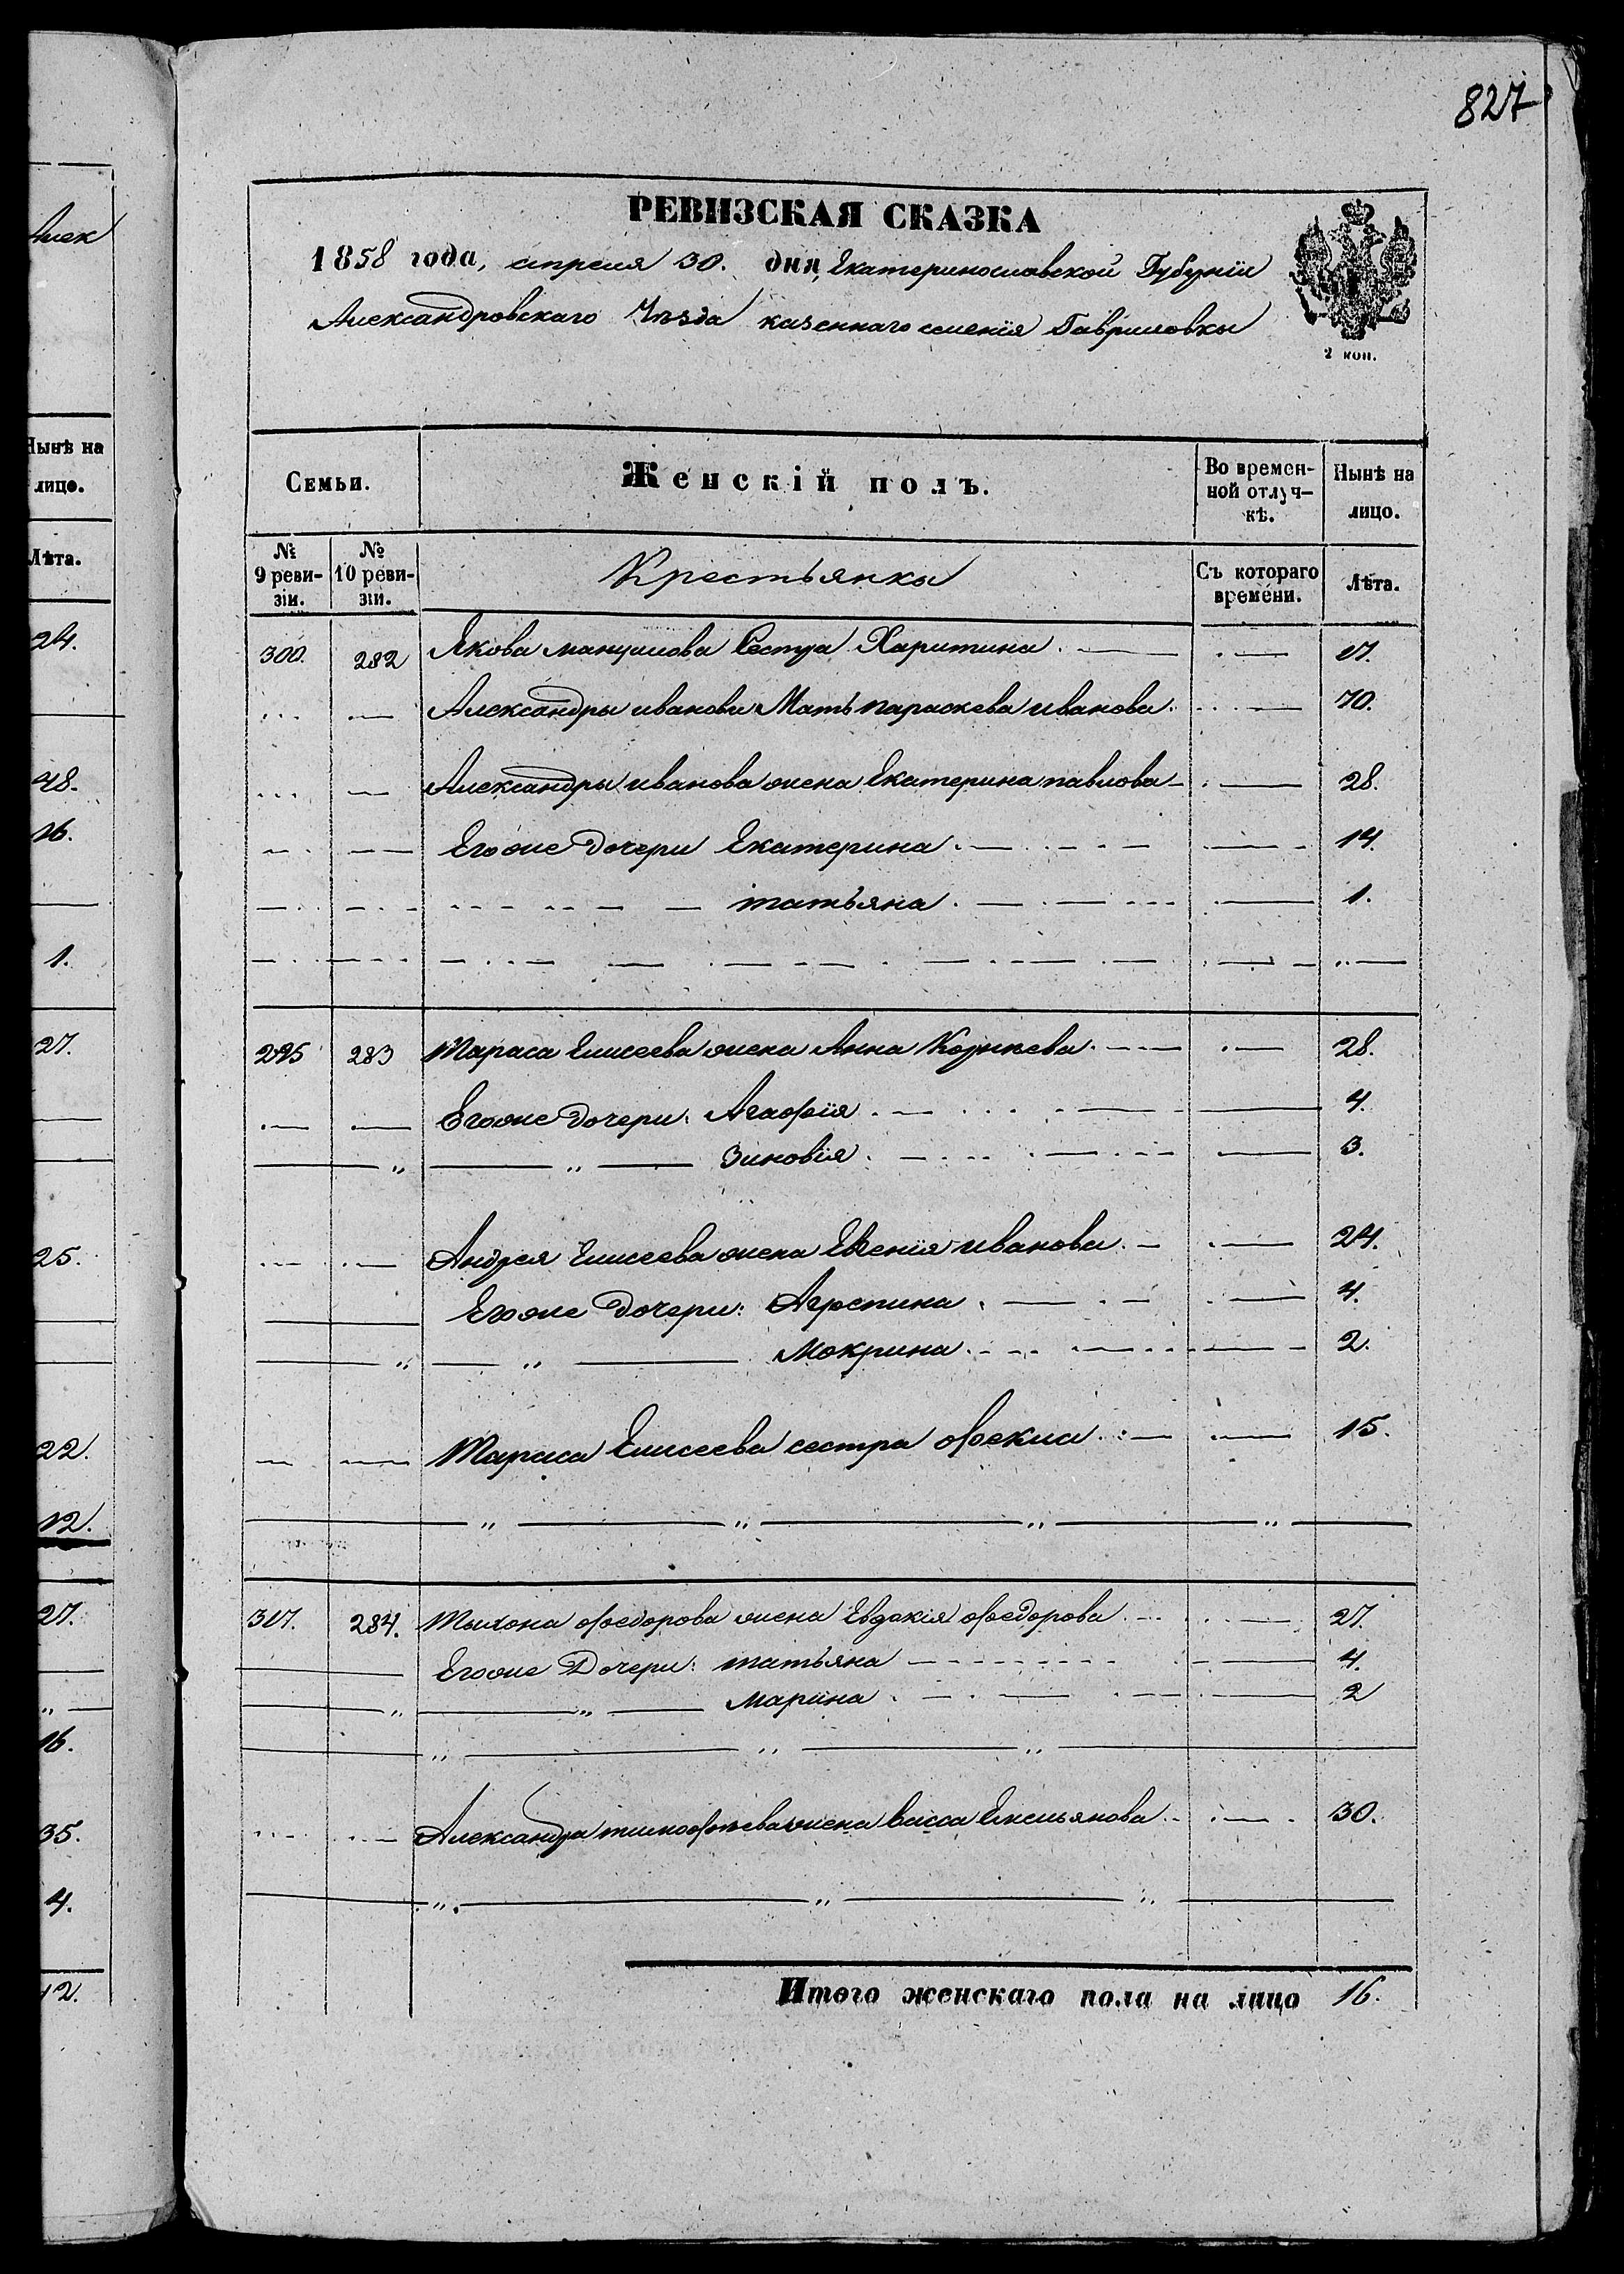 827
РЕВИЗСКАЯ СКАЗКА
1858 года, апреля 30. дня, Екатеринославской Губернїи
Александровскаго Уѣзда казеннаго селенїя Гавриловки
2 коп.
Семьи. Женскій полъ. Во времен- Нынѣ на
ной отлуч- лицо.
кѣ.
№ 9 реви- зіи. № 10 реви- зіи. Крестьянки Съ котораго времени. Лѣта.
300. 282 Якова Сестра Харитина
Александры иванова Мать параскева иванова 70.
Александры иванова жена Екатерина павлова 28.
Егоже дочери Екатерина 14.
татьяна 1.
295 283 Тараса Елисеева жена Анна Корнѣева 28.
Егоже дочери: Агафїя 4.
Зиновїя 3.
Андрея Елисеева жена Евгенїя иванова 24.
Егоже дочери: Агрепина 4.
Мокрина 2.
Тараса Елисеева сестра фекла 15.
317. 284. Тыхона федорова жена Евдокїя федорова 27.
Егоже Дочери: татьяна 4.
Марина 2
Александра тимофѣева жена Васса Емельянова 30.
Итого женскаго пола на лицо 16.
Алек
Нынѣ на
лицо.
Лѣта.
24.
48.
16.
1.
27.
25.
22.
12.
27.
16.
35.
4.
12.